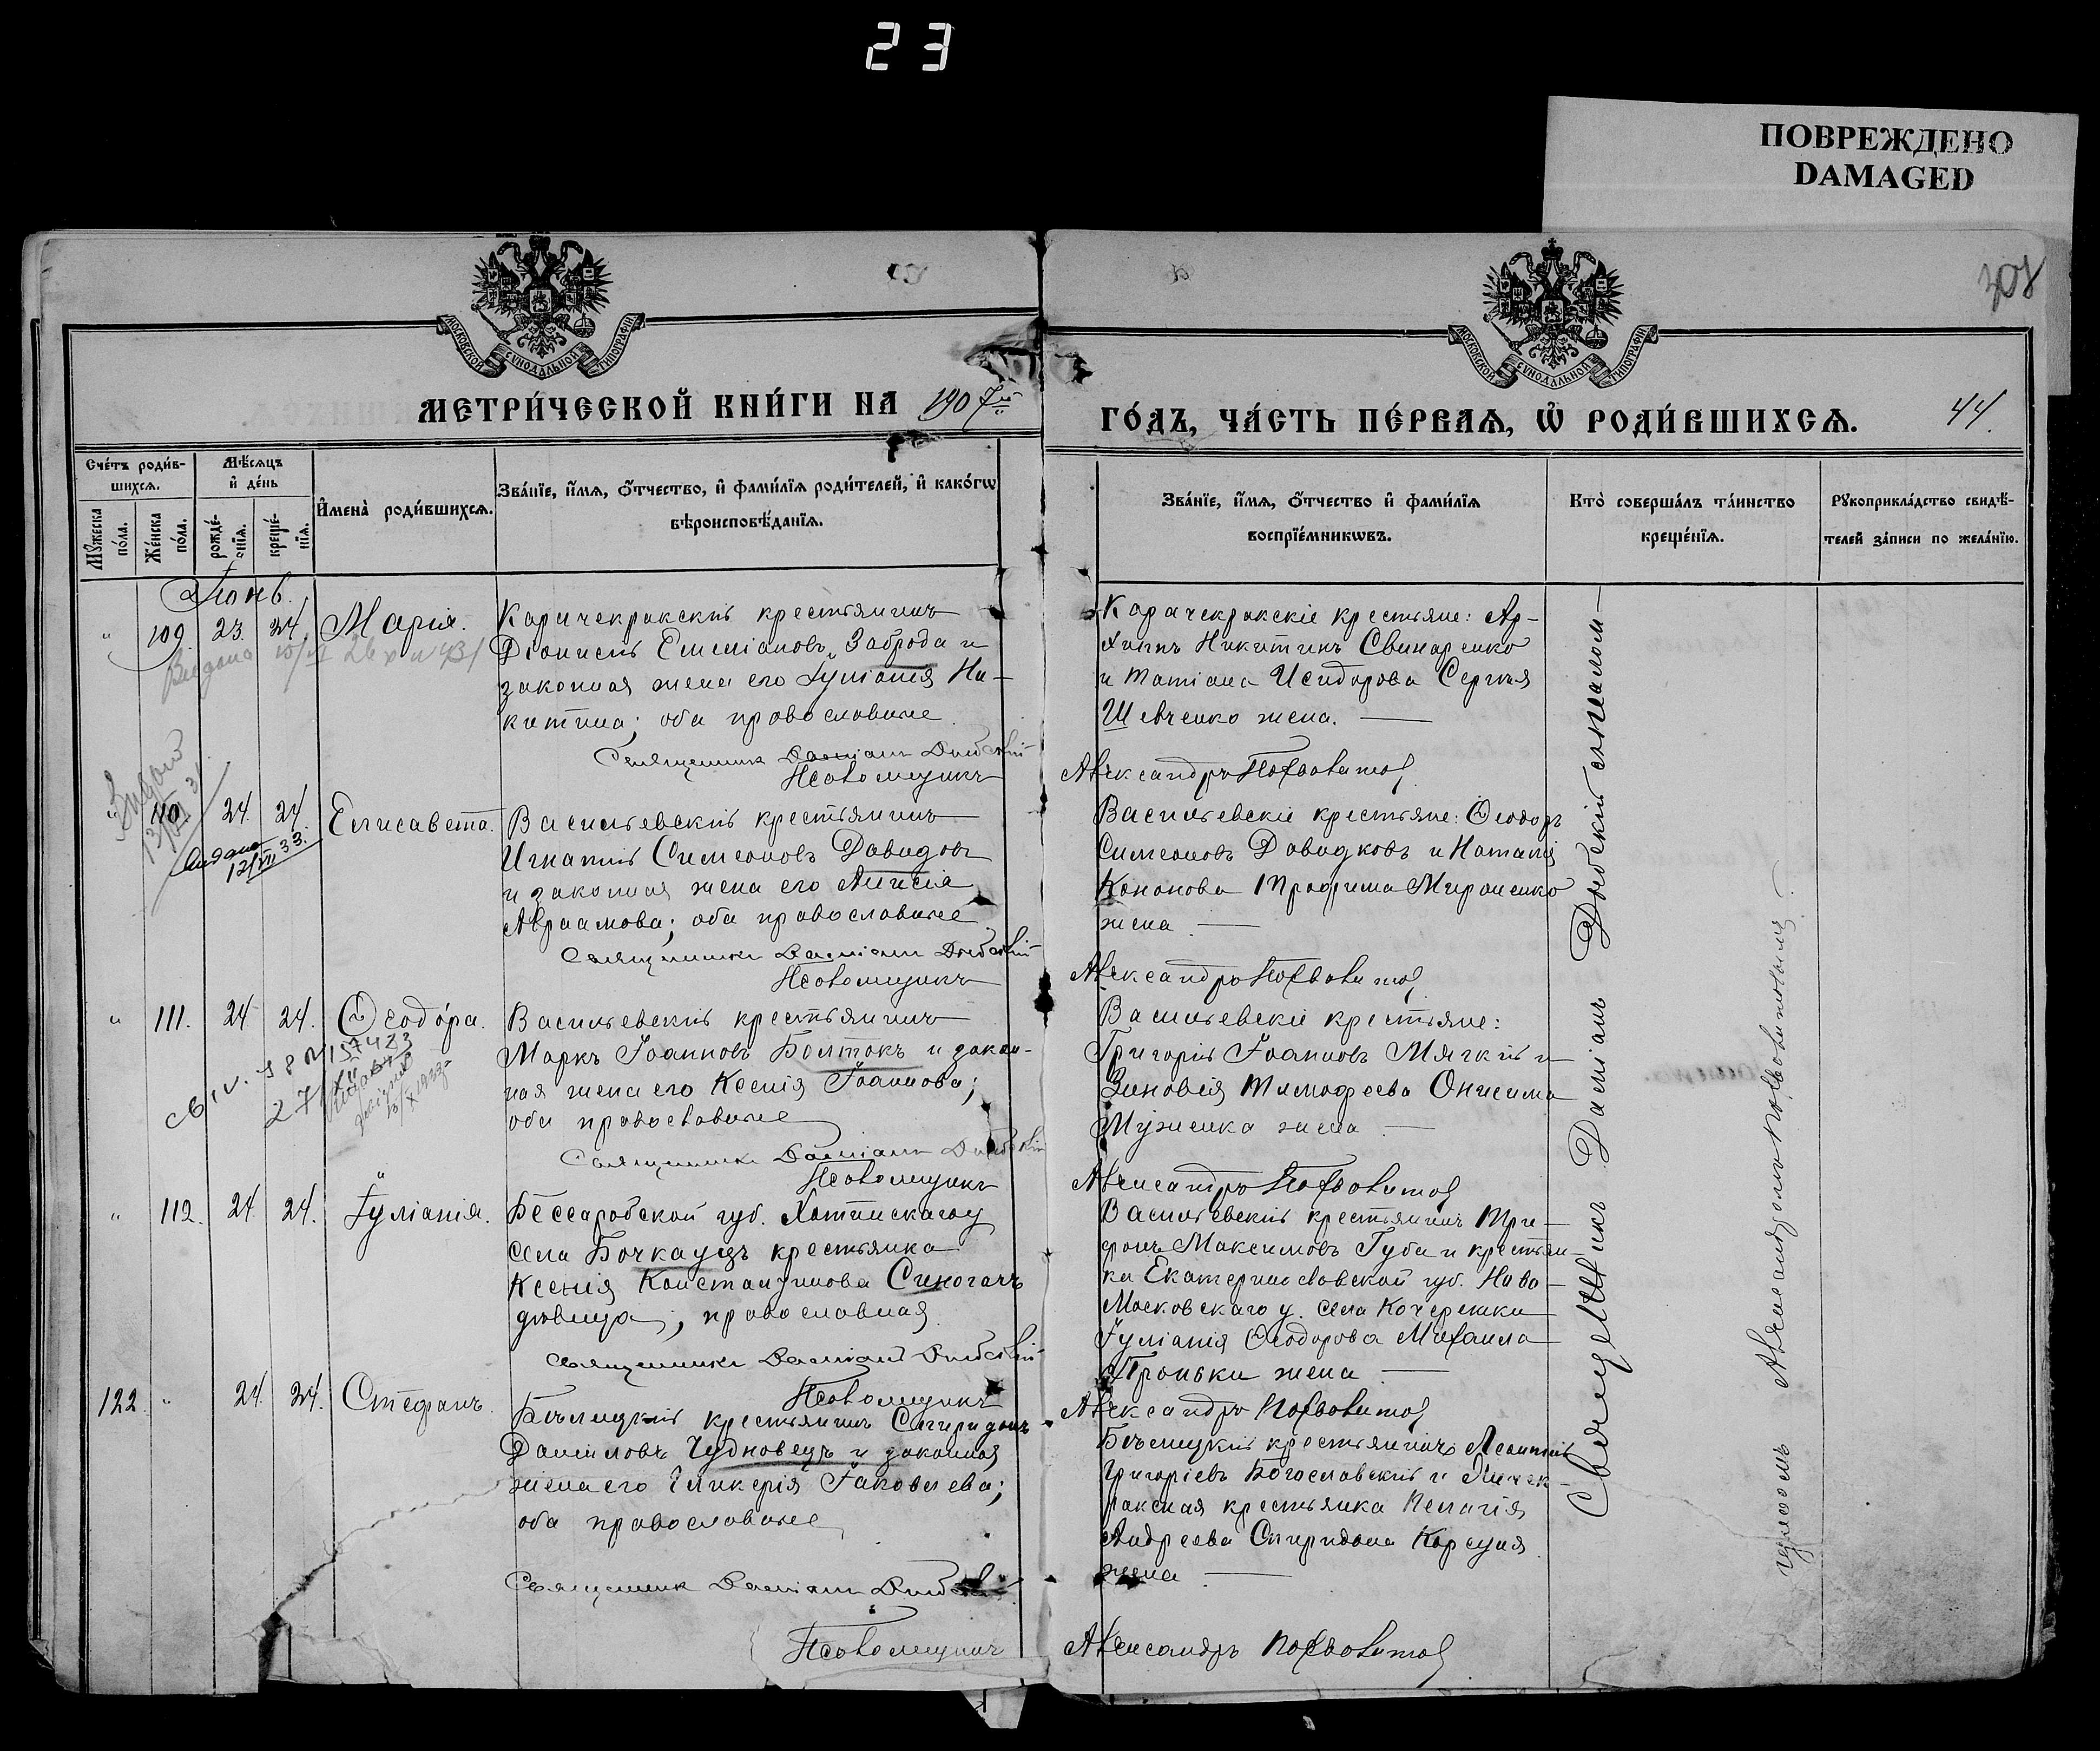 23
ПОВРЕЖДЕНО
DAMAGED
МОСКОВСКОЙ СУНОДАЛЬНОЙ ТИПОГРАФІИ
МОСКОВСКОЙ СУНОДАЛЬНОЙ ТИПОГРАФІИ
МЕТРИ́ЧЕСКОЙ КНИ́ГИ НА 1907й
ГО́ДЪ, ЧА́СТЬ ПЕ́РВАѦ, Ѽ РОДИ́ВШИХСѦ. 44.
Сче́тъ роди́в-
шихсѧ.
Мꙋ́жеска по́ла.
Же́нска по́ла.
Мѣ́сѧцъ
и҆ де́нь
рожде́-
нїѧ.
креще́-
нїѧ.
И҆мена̀ роди́вшихсѧ.
Зва́нїе, и҆́мѧ, ѻ҆́тчество, и҆ фами́лїѧ роди́телей, и҆ како́гѡ
вѣроисповѣ́данїѧ.
Зва́нїе, и҆́мѧ, ѻ҆́тчество и҆ фами́лїѧ
воспрїе́мникѡвъ.
Кто̀ соверша́лъ та́инство
креще́нїѧ.
Рꙋкоприкла́дство свидѣ́-
телей за́писи по жела́нїю.
Іюнь.
" 109. 23. 24. Марія.
Карачекракскій крестьянинъ
Діонисій Емиліановъ Заброда и
законная жена его Іуліанія Ни-
китина; оба православные.
Священникъ Даміанъ Дыбскій
Псаломщикъ
Карачекракскіе крестьяне: Ар-
хипъ Никитинъ Свинаренко
и Татіана Исидорова Сергія
Шевченко жена. —
Александръ
" 110. 24. 24. Елисавета.
Видано 12/VII 33.
Васильевскій крестьянинъ
Игнатій Симеоновъ Давидовъ
и законная жена его Анисія
Авраамова; оба православные
Священникъ Даміанъ Дыбскій
Псаломщикъ
Васильевскіе крестьяне: Ѳеодоръ
Симеоновъ Давидковъ и Наталія
Кононова Трофима Мироненко
жена. —
Александръ
" 111. 24. 24. Ѳеодо́ра.
Васильевскій крестьянинъ
Маркъ Іоанновъ Болтокъ и закон-
ная жена его Ксенія Іоаннова;
оба православные
Священникъ Даміанъ Дыбскій
Псаломщикъ
Васильевскіе крестьяне:
Григорій Іоанновъ Мягкій и
Зиновія Тимофеева Онисима
Муженка жена —
Александръ
" 112. 24. 24. Іуліанія.
Бессарабской губ. Хотинскаго у
села Бочкауцъ крестьянка
Ксенія Константинова Синогачъ
дѣвица; православная.
Священникъ Даміанъ Дыбскій
Псаломщикъ
Васильевскій крестьянинъ Три-
фонъ Максимовъ Губа и крестьян-
ка Екатеринославской губ. Ново-
Московскаго у. села Кочережки
Іуліанія Ѳеодорова Михаила
Проньки жена —
Александръ
122. " 24. 24. Стефанъ.
Бѣлицкій крестьянинъ Спиридонъ
Даниловъ Чудновецъ и законная
жена его Гликерія Іаковлева;
оба православные
Священникъ Даміанъ Дыбскій
Псаломщикъ
Бѣлицкій крестьянинъ Леонтій
Григоріевъ Богославскій и
крестьянка Пелагія
Андреева Спиридона Корсуня
жена —
Александръ
Священникъ Даміанъ Дыбскій съ псалом-
щикомъ Александромъ